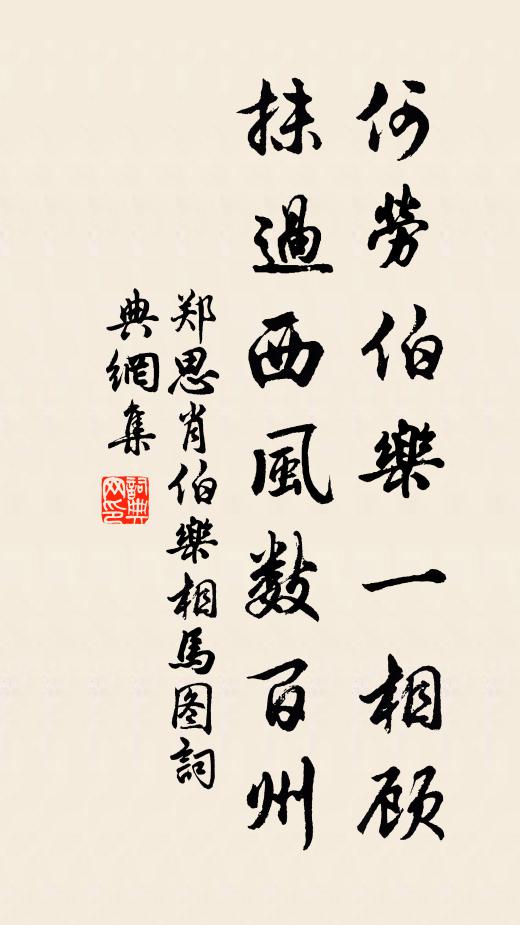 何勞伯樂一相顾
抹過西風数百州
郑思肖伯樂相馬图詞
典網集
詞典
网印